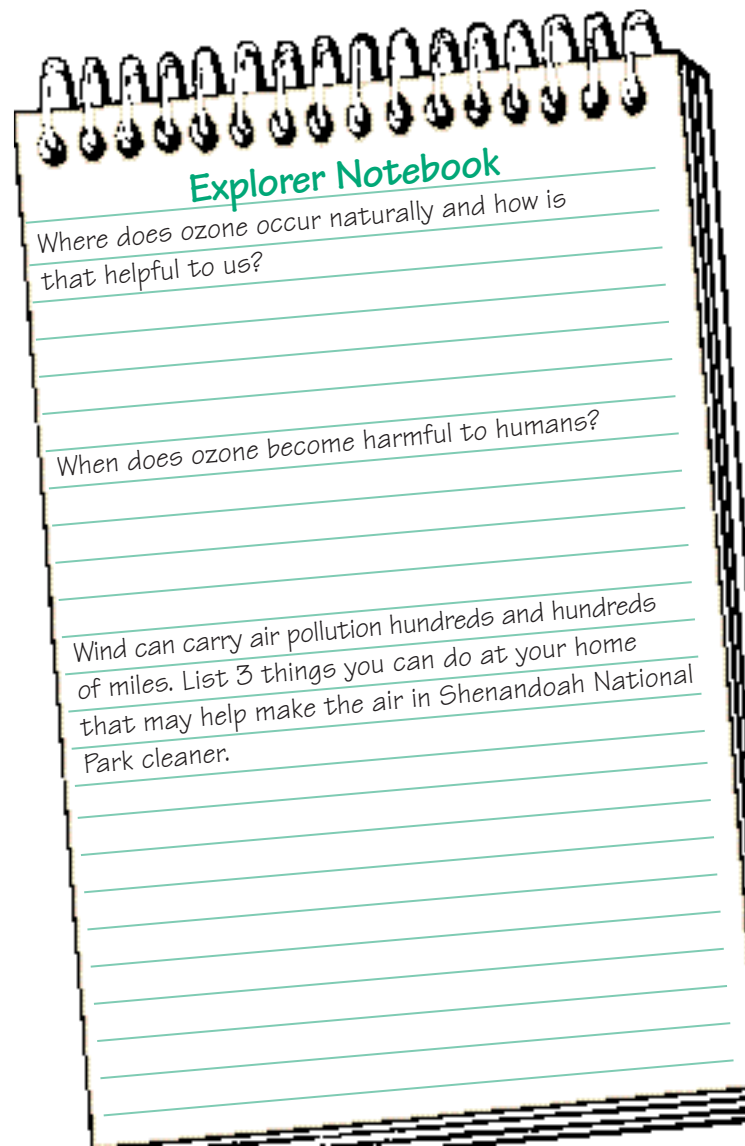 Explorer Notebook
Where does ozone occur naturally and how is
that helpful to us?
When does ozone become harmful to humans?
Wind can carry air pollution hundreds and hundreds
of miles. List 3 things you can do at your home
that may help make the air in Shenandoah National
Park cleaner.